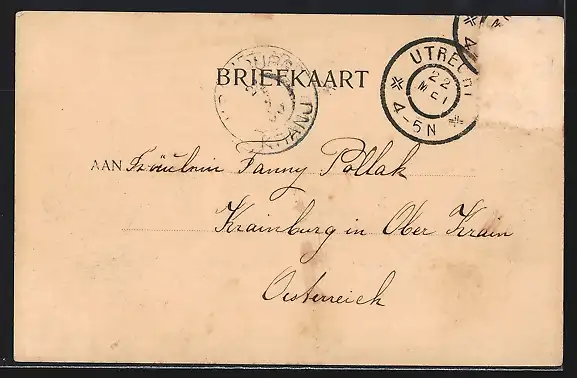 BRIEFKAART
UTRECHT
22
MEI
4-5N
KRANJ
AAN Fräulein Fanny Pollak
Krainburg in Ober Krain
Oesterreich